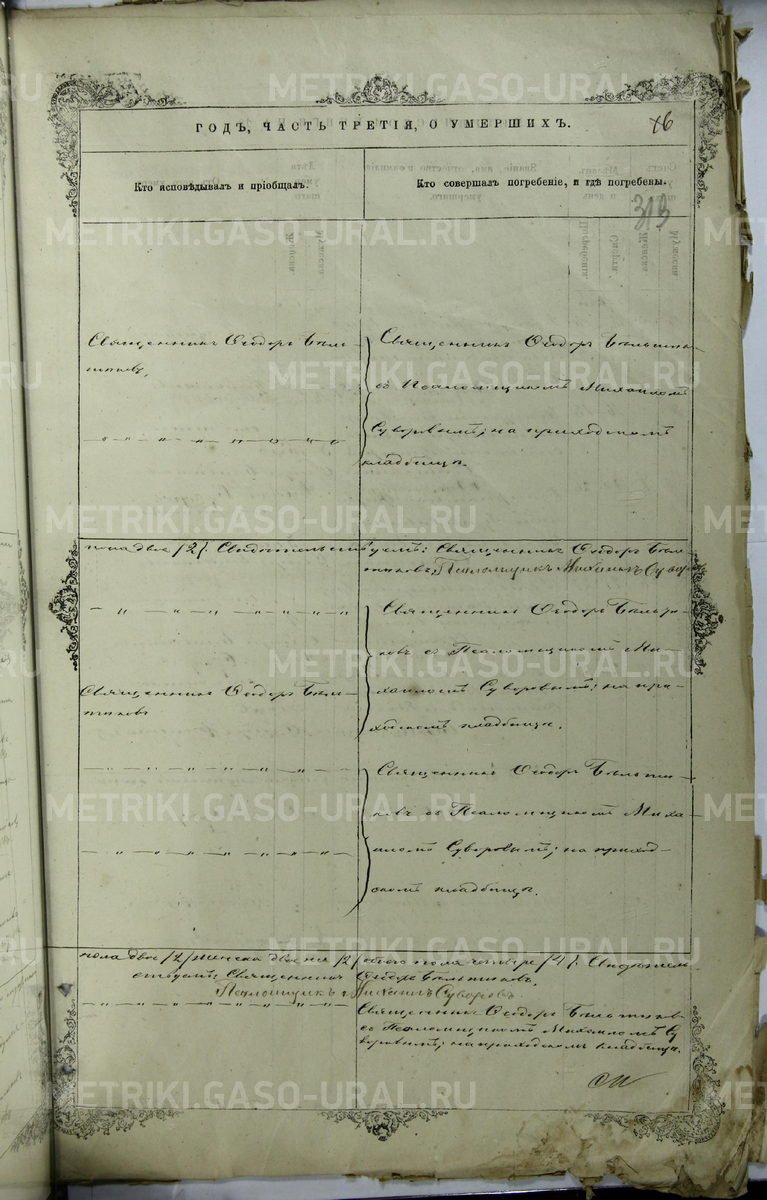 METRIKI.GASO-URAL.RU
ГОДЪ, ЧАСТЬ ТРЕТІЯ, О УМЕРШИХЪ.
76
Кто исповѣдывалъ и пріобщалъ.
Кто совершалъ погребеніе, и гдѣ погребены.
313
Священникъ Ѳеодоръ
Священникъ Ѳеодоръ
съ Псаломщикомъ Михаиломъ
Суворовымъ; на приходскомъ
кладбищѣ.
пола двое /2/. Свидѣтельствуемъ: Священникъ Ѳеодоръ
Псаломщикъ Михаилъ Суворовъ
Священникъ Ѳеодоръ
съ Псаломщикомъ Ми-
хаиломъ Суворовымъ; на при-
ходскомъ кладбищѣ.
Священникъ Ѳеодоръ
Священникъ Ѳеодоръ
съ Псаломщикомъ Миха-
иломъ Суворовымъ; на приход-
скомъ кладбищѣ.
пола двое /2/ женска двое /2/ обоего пола четыре /4/. Свидѣтель-
ствуемъ: Священникъ Ѳеодоръ
Псаломщикъ Михаилъ Суворовъ
Священникъ Ѳеодоръ
съ Псаломщикомъ Михаиломъ Су-
воровымъ; на приходскомъ кладбищѣ.